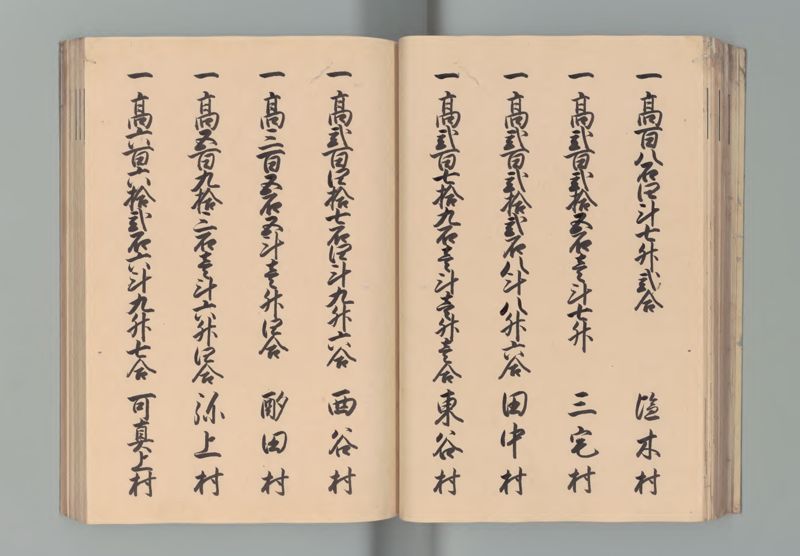 一 高百八石四斗七升弐合 塩木村
一 高弐百弐拾五石壱斗七升 三宅村
一 高弐百弐拾弐石八斗八升六合 田中村
一 高弐百七拾九石壱斗壱升壱合 東谷村
一 高弐百四拾七石四斗九升六合 西谷村
一 高三百五石五斗壱升四合 酌田村
一 高五百九拾三石壱斗六升四合 弥上村
一 高六百六拾弐石六斗九升七合 可真上村